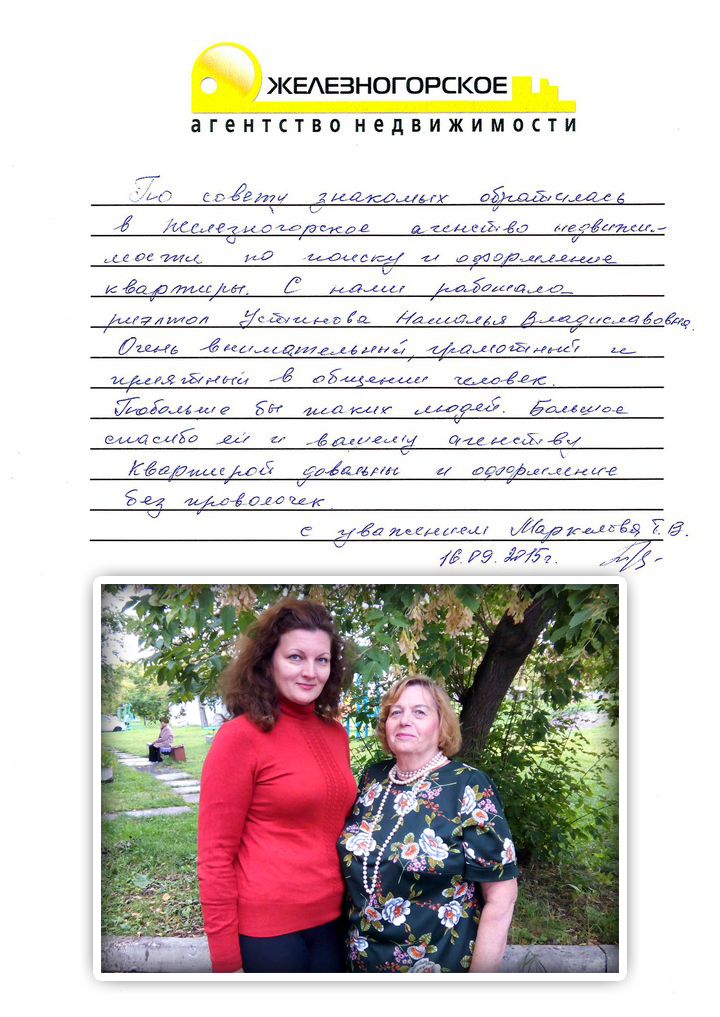 ЖЕЛЕЗНОГОРСКОЕ
агентство недвижимости
По совету знакомых обратилась
в Железногорское агенство недвижи-
мости по поиску и оформление
квартиры. С нами работало
риэлтол Устинова Наталья Владиславовна.
Очень внимательный, грамотный и
приятный в общении человек.
Побольше бы таких людей. Большое
спасибо ей и вашему агенству
Квартирой довольны и оформление
без проволочек.
с уважением Маркелова Т. В.
16.09.2015г.